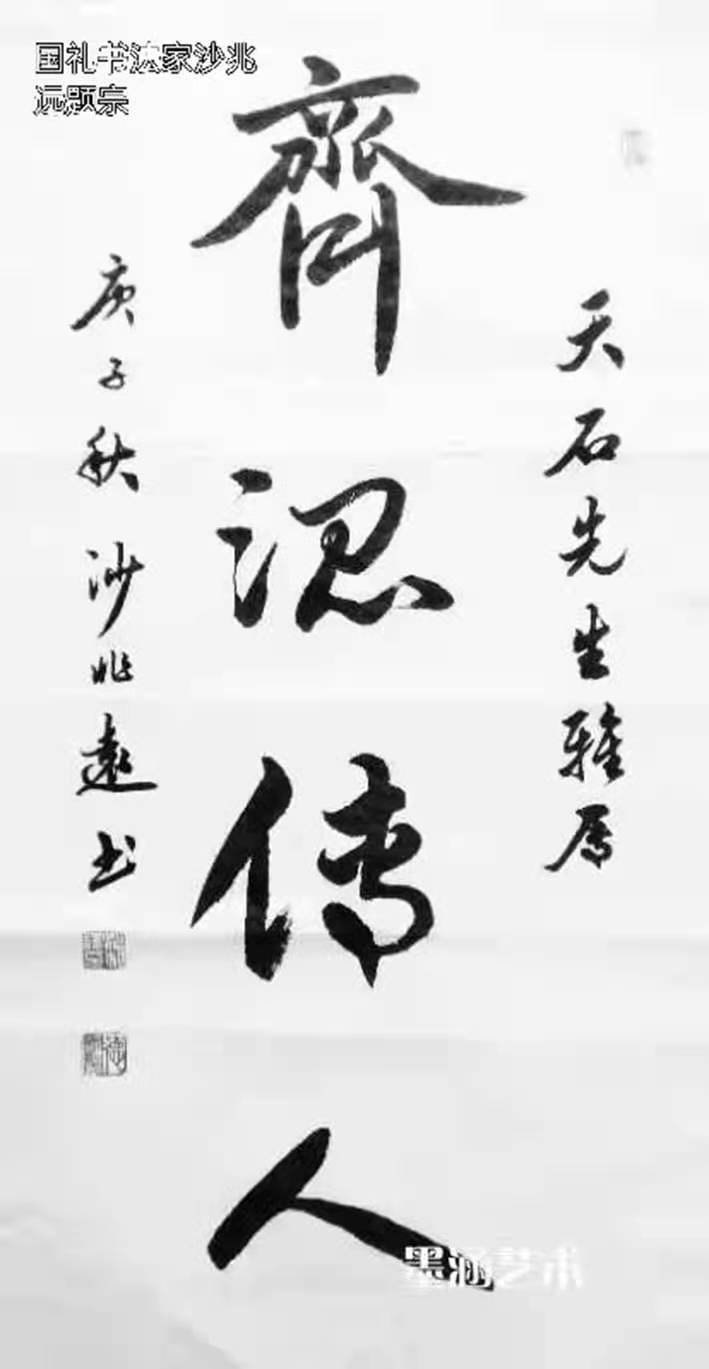 国礼书法家沙兆
远题
天石先生雅属
齊認傳人
庚子秋沙兆遠书
墨涵艺术